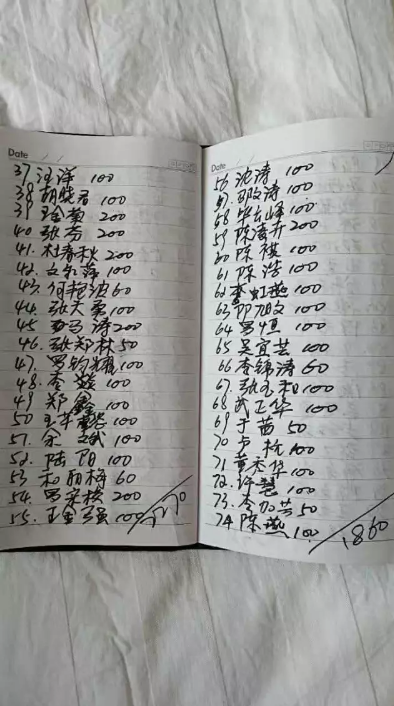 Date
37 汪洋 100
38 胡晓君 100
39 琼菊 200
40 张芬 200
41. 杜春秋 200
42. 文红萍 100
43. 何艳波 60
44. 张天勇 100
45 司马涛 200
46. 张郑林 50
47. 罗钧耀 100
48. 李毅 100
49 郑鑫 100
50 100
51. 余斌 100
52. 陆阳 100
53 和丽梅 60
54. 罗荣模 200
55. 王金强 100
Date
56 沈涛 100
57. 涛 100
58 毕云峰 100
59 陈凌卉 200
60 陈祺 100
61 陈浩 100
62 李虹燕 100
63 邝旭文 100
64 罗恒 100
65 吴宜芸 100
66 李锦涛 60
67. 张玉和 100
68 武正华 100
69 于茜 50
70 卢杭 100
71 董杰华 100
72. 许慧 100
73. 李加芸 50
74 陈燕 100
1860